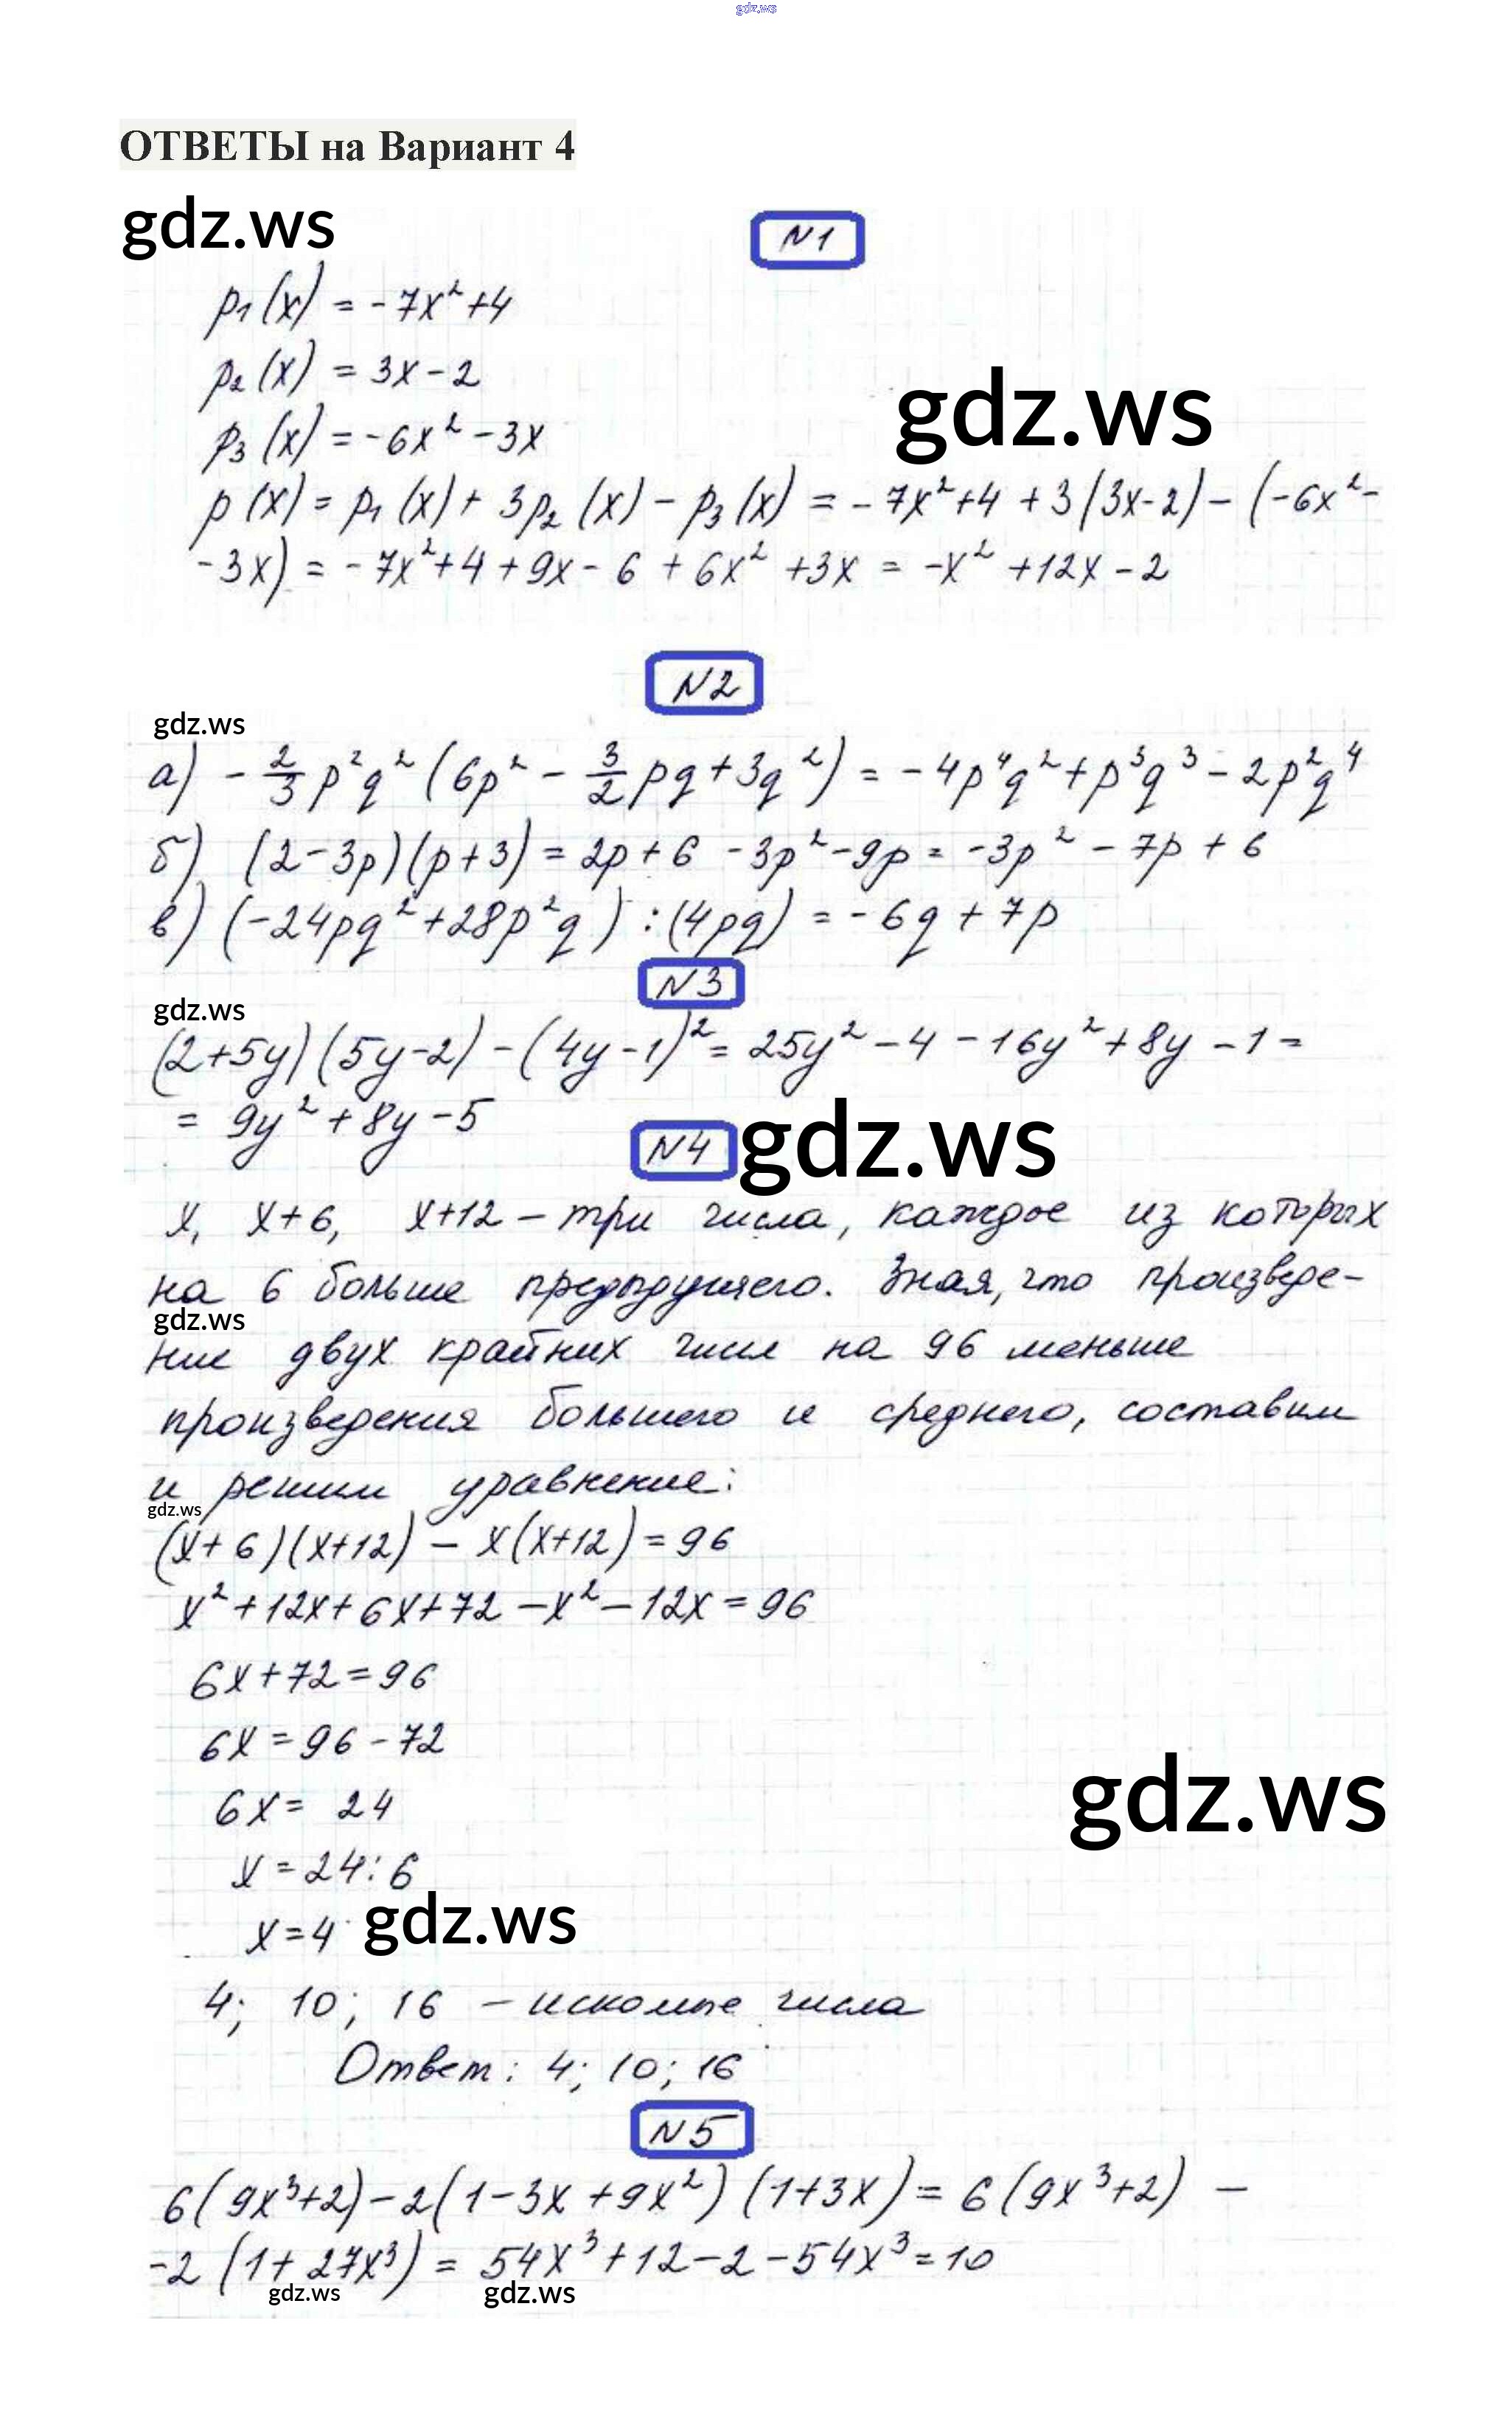 gdz.ws
ОТВЕТЫ на Вариант 4
gdz.ws
N1
p₁(x) = -7x²+4
p₂(x) = 3x-2
gdz.ws
p₃(x) = -6x²-3x
p(x) = p₁(x) + 3p₂(x) - p₃(x) = -7x²+4 +3(3x-2) - (-6x²-
-3x) = -7x²+4+9x-6+6x²+3x = -x²+12x-2
N2
gdz.ws
а) -2/3 p²q²(6p² - 3/2 pq+3q²) = -4p⁴q²+p³q³-2p²q⁴
б) (2-3p)(p+3) = 2p+6-3p²-9p = -3p²-7p+6
в) (-24pq²+28p²q) : (4pq) = -6q+7p
N3
gdz.ws
(2+5y)(5y-2)-(4y-1)² = 25y²-4-16y²+8y-1=
= 9y²+8y-5
N4
gdz.ws
x, x+6, x+12 – три числа, каждое из которых
на 6 больше предыдущего. Зная, что произведе-
gdz.ws
ние двух крайних чисел на 96 меньше
произведения большего и среднего, составим
и решим уравнение:
gdz.ws
(x+6)(x+12) – x(x+12) = 96
x²+12x+6x+72-x²-12x=96
6x+72=96
6x=96-72
gdz.ws
6x= 24
x=24:6
x=4
gdz.ws
4; 10; 16 – искомые числа
Ответ: 4; 10; 16
N5
6(9x³+2)-2(1-3x+9x²)(1+3x) = 6(9x³+2) –
-2(1+27x³) = 54x³+12-2-54x³=10
gdz.ws
gdz.ws